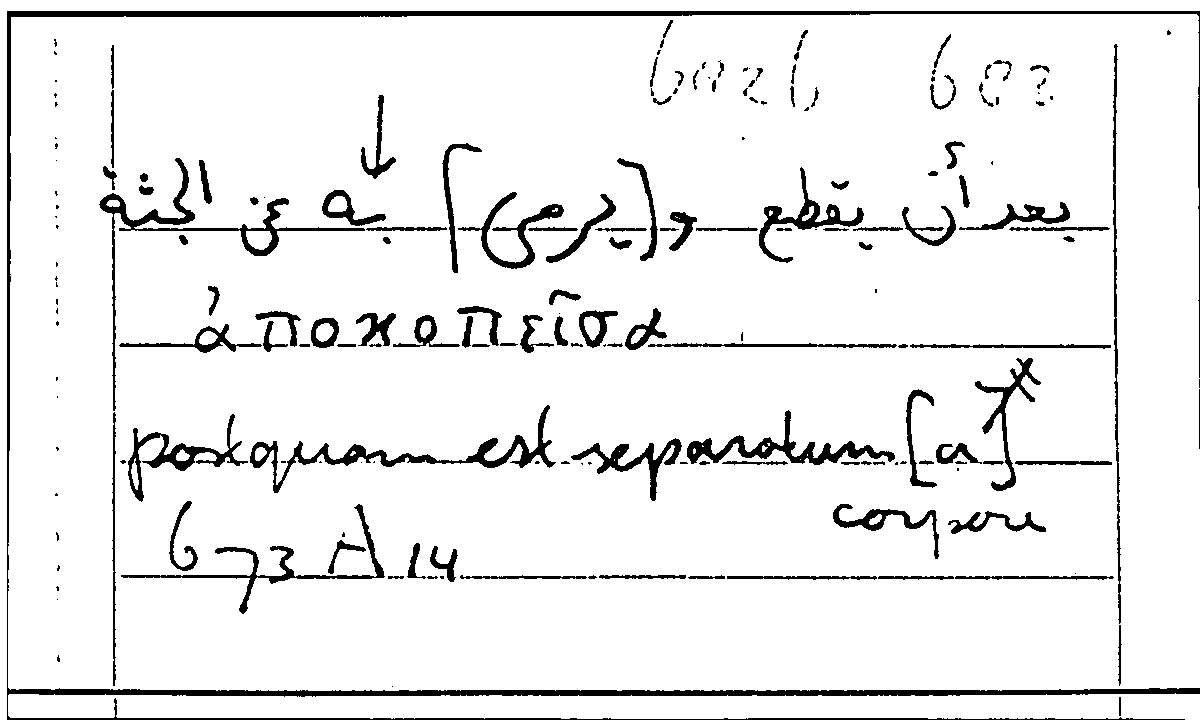 بعد أن يقطع و[(يرمى] به عن الجثة
ἀποκοπεῖσα
postquam est separatum [a]*
corpore
673 A 14